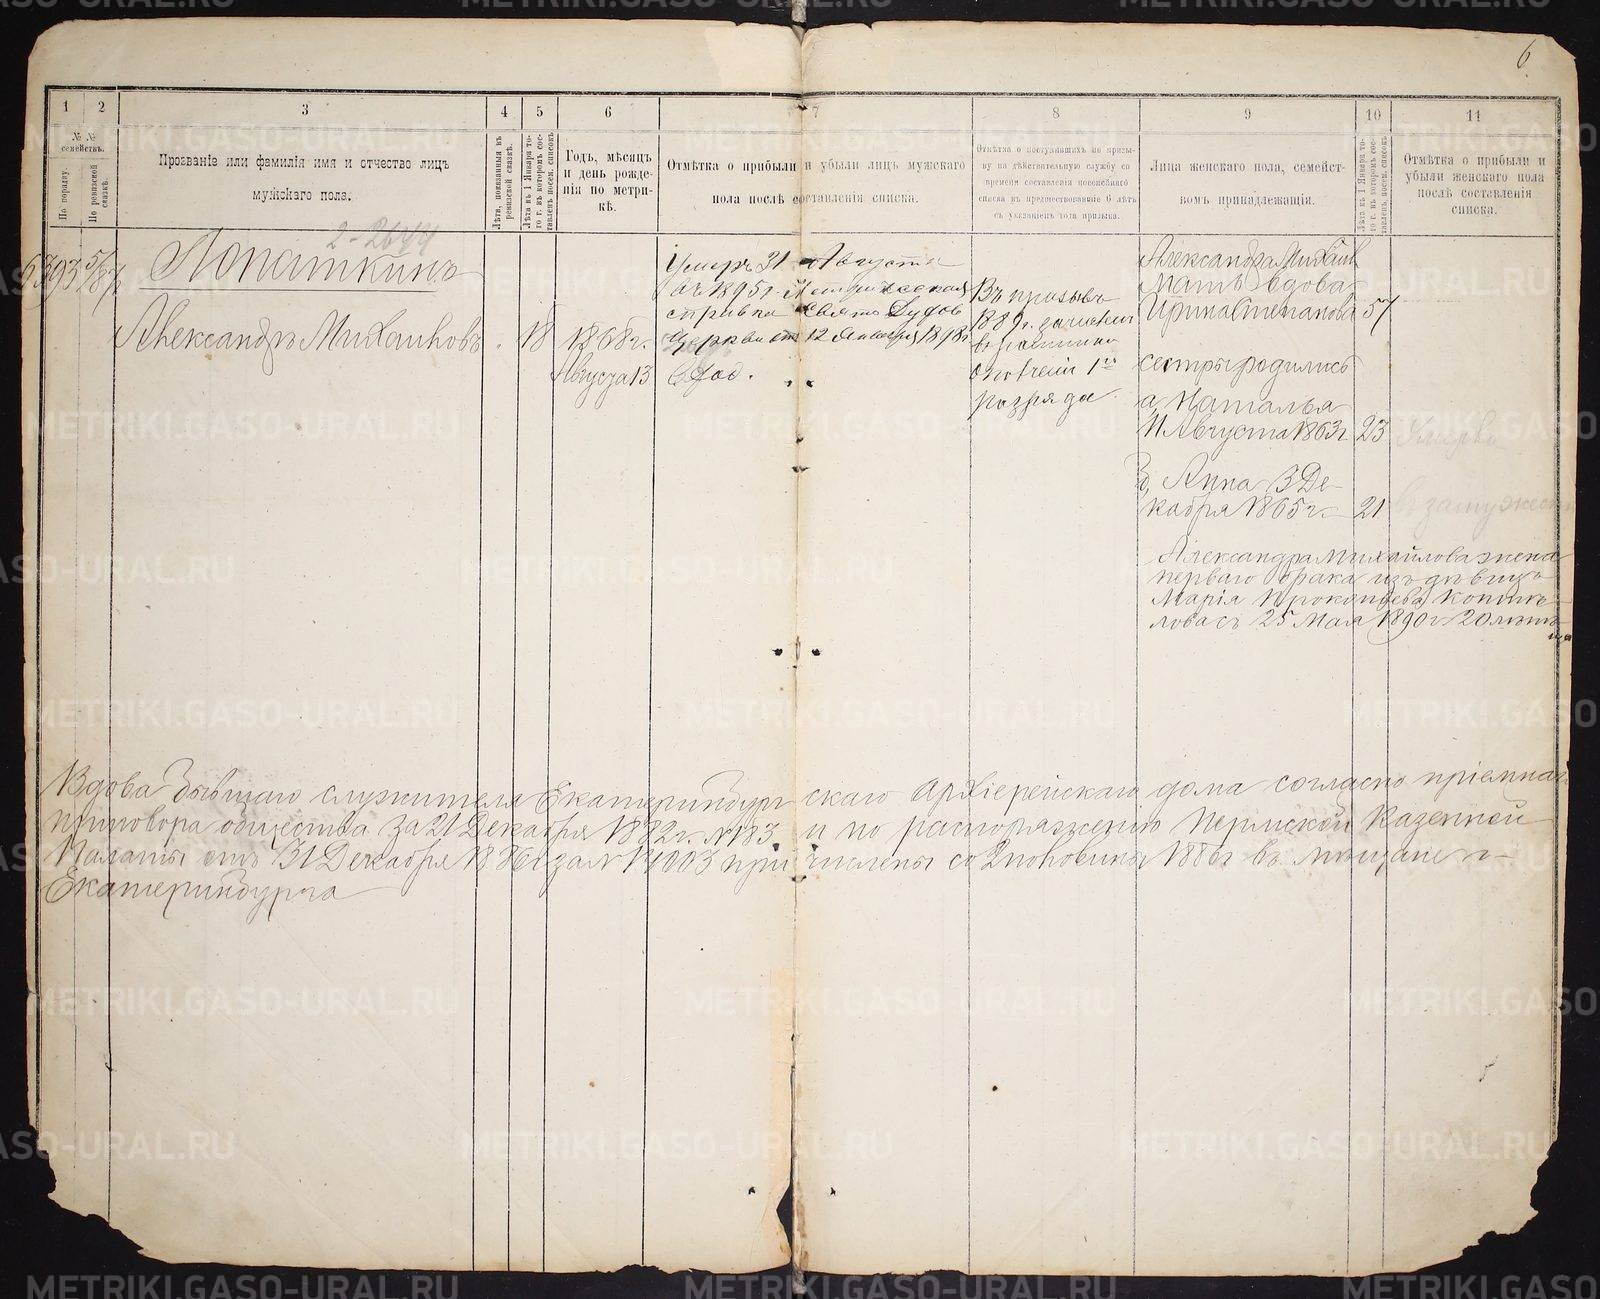 6
1 2 3 4 5 6 7 8 9 10 11
№ №
семействъ.
По порядку.
По ревизской сказкѣ.
Прозваніе или фамилія имя и отчество лицъ
мужскаго пола.
Лѣта, показанныя въ ревизской сказкѣ.
Лѣта къ 1 Января то-
го г. въ которомъ сос-
тавленъ посем. списокъ
Годъ, мѣсяцъ
и день рожде-
нія по метри-
кѣ.
Отмѣтка о прибыли и убыли лицъ мужскаго
пола послѣ составленія списка.
Отмѣтка о поступавшихъ по призы-
ву на дѣйствительную службу со
времени составленія новѣйшаго
списка въ предшествовавшіе 6 лѣтъ
съ указаніемъ года призыва.
Лица женскаго пола, семейст-
вомъ принадлежащія.
Лѣта къ 1 Января то-
го г. въ которомъ сос-
тавленъ посем. списокъ
Отмѣтка о прибыли и
убыли женскаго пола
послѣ составленія
списка.
2-2644
Лопаткинъ
Александръ Михаиловъ 18 1868 г.
Августа 13
Умеръ 31 Августа
1895 г.
справка Свято Духов
Церкви отъ 12 Января 1898 г.
Въ призывъ
1889 г. зачисленъ
въ ратники
ополченія 1го
разряда.
Александра Михаил
Мать вдова
Ирина Степанова 57
сестры родились
а, Наталья
11 Августа 1863 г. 23 Умерла
б, Анна 3 Де-
кабря 1865 г. 21 въ замужест
Александра Михайлова жена
перваго брака изъ дѣвицъ
Марія Прокопьева
лова съ 25 Мая 1890 г. 20 лѣтъ
Вдова бывшаго служителя Екатеринбургскаго Архіерейскаго дома согласно пріемнаго
приговора общества за 21 Декабря 1882 г. № 183 и по распоряженію Пермской Казенной
Палаты отъ 31 Декабря 1886 г. за № 14003 причислены со 2 половины 1886 г. въ мѣщане г.
Екатеринбурга
METRIKI.GASO-URAL.RU